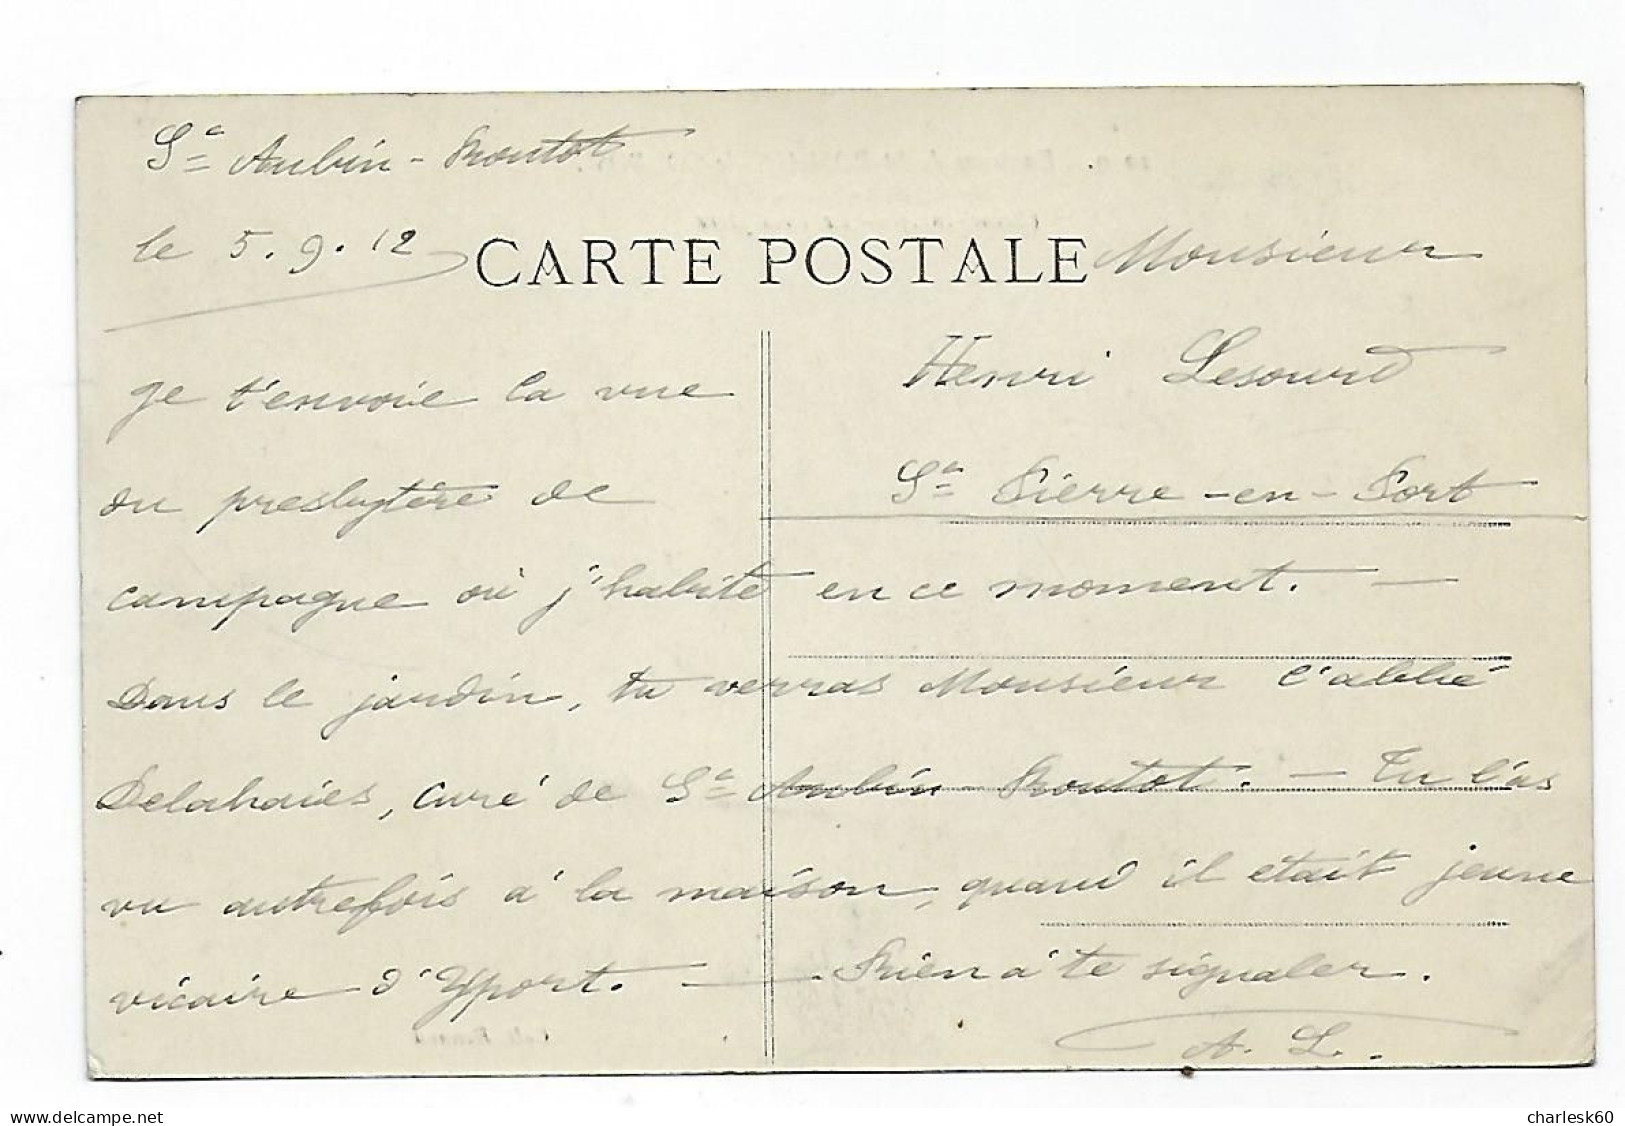 St Aubin-Routot
le 5.9.12
CARTE POSTALE
Monsieur
Henri Lesourd
St Pierre-en-Port
je t'envoie la vue
du presbytère de
campagne où j'habite en ce moment. —
Dans le jardin, tu verras Monsieur l'abbé
Delahaies, curé de St Aubin-Routot. — Tu l'as
vu autrefois à la maison, quand il était jeune
vicaire d'Yport. — Rien à te signaler.
A. L.
delcampe.net
charlesk60